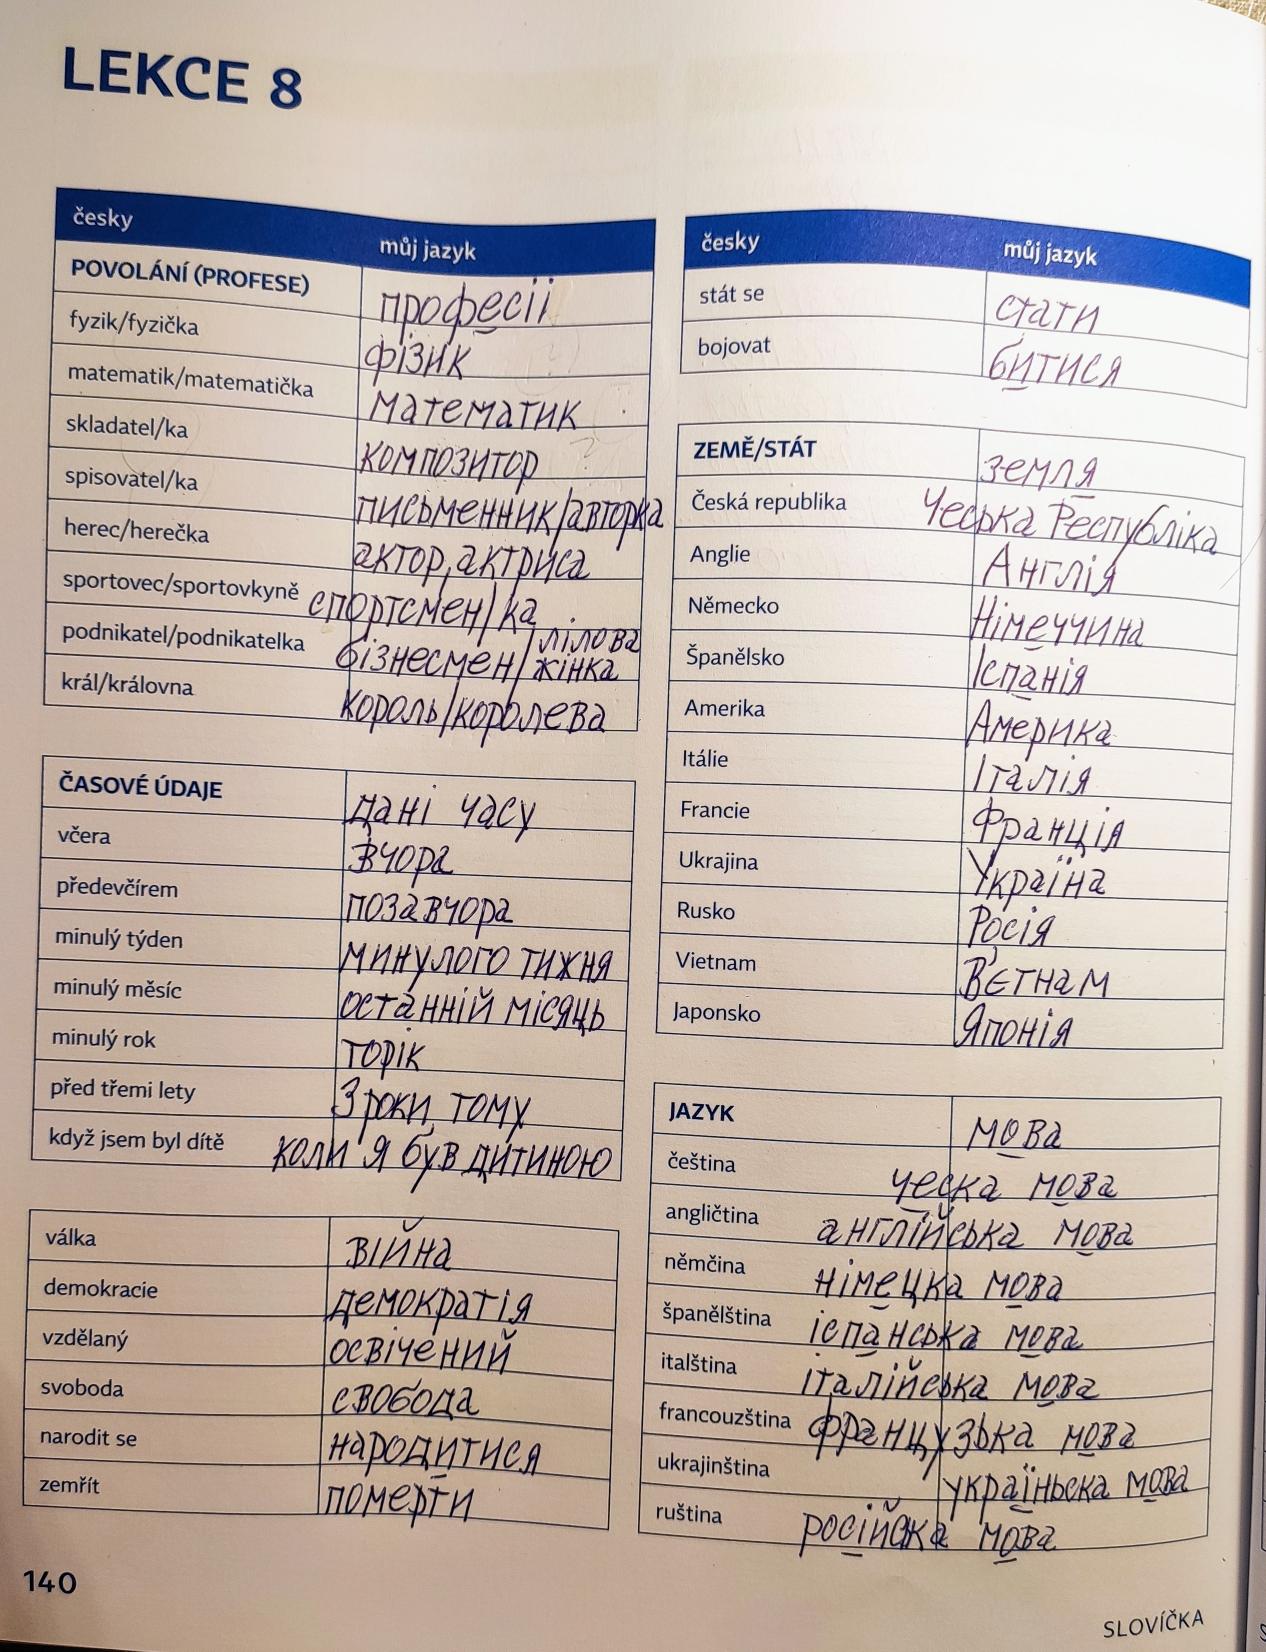 LEKCE 8
česky můj jazyk
POVOLÁNÍ (PROFESE) професії
fyzik/fyzička фізик
matematik/matematička математик
skladatel/ka композитор
spisovatel/ka письменник/авторка
herec/herečka актор, актриса
sportovec/sportovkyně спортсмен/ка
podnikatel/podnikatelka бізнесмен/ділова жінка
král/královna король/королева
ČASOVÉ ÚDAJE дані часу
včera вчора
předevčírem позавчора
minulý týden минулого тижня
minulý měsíc останній місяць
minulý rok торік
před třemi lety 3 роки тому
když jsem byl dítě коли я був дитиною
válka війна
demokracie демократія
vzdělaný освічений
svoboda свобода
narodit se народитися
zemřít померти
česky můj jazyk
stát se стати
bojovat битися
ZEMĚ/STÁT земля
Česká republika Чеська Республіка
Anglie Англія
Německo Німеччина
Španělsko Іспанія
Amerika Америка
Itálie Італія
Francie Франція
Ukrajina Україна
Rusko Росія
Vietnam В'єтнам
Japonsko Японія
JAZYK мова
čeština ческа мова
angličtina англійська мова
němčina німецка мова
španělština іспанська мова
italština італійська мова
francouzština французька мова
ukrajinština україньска мова
ruština російска мова
140
SLOVÍČKA